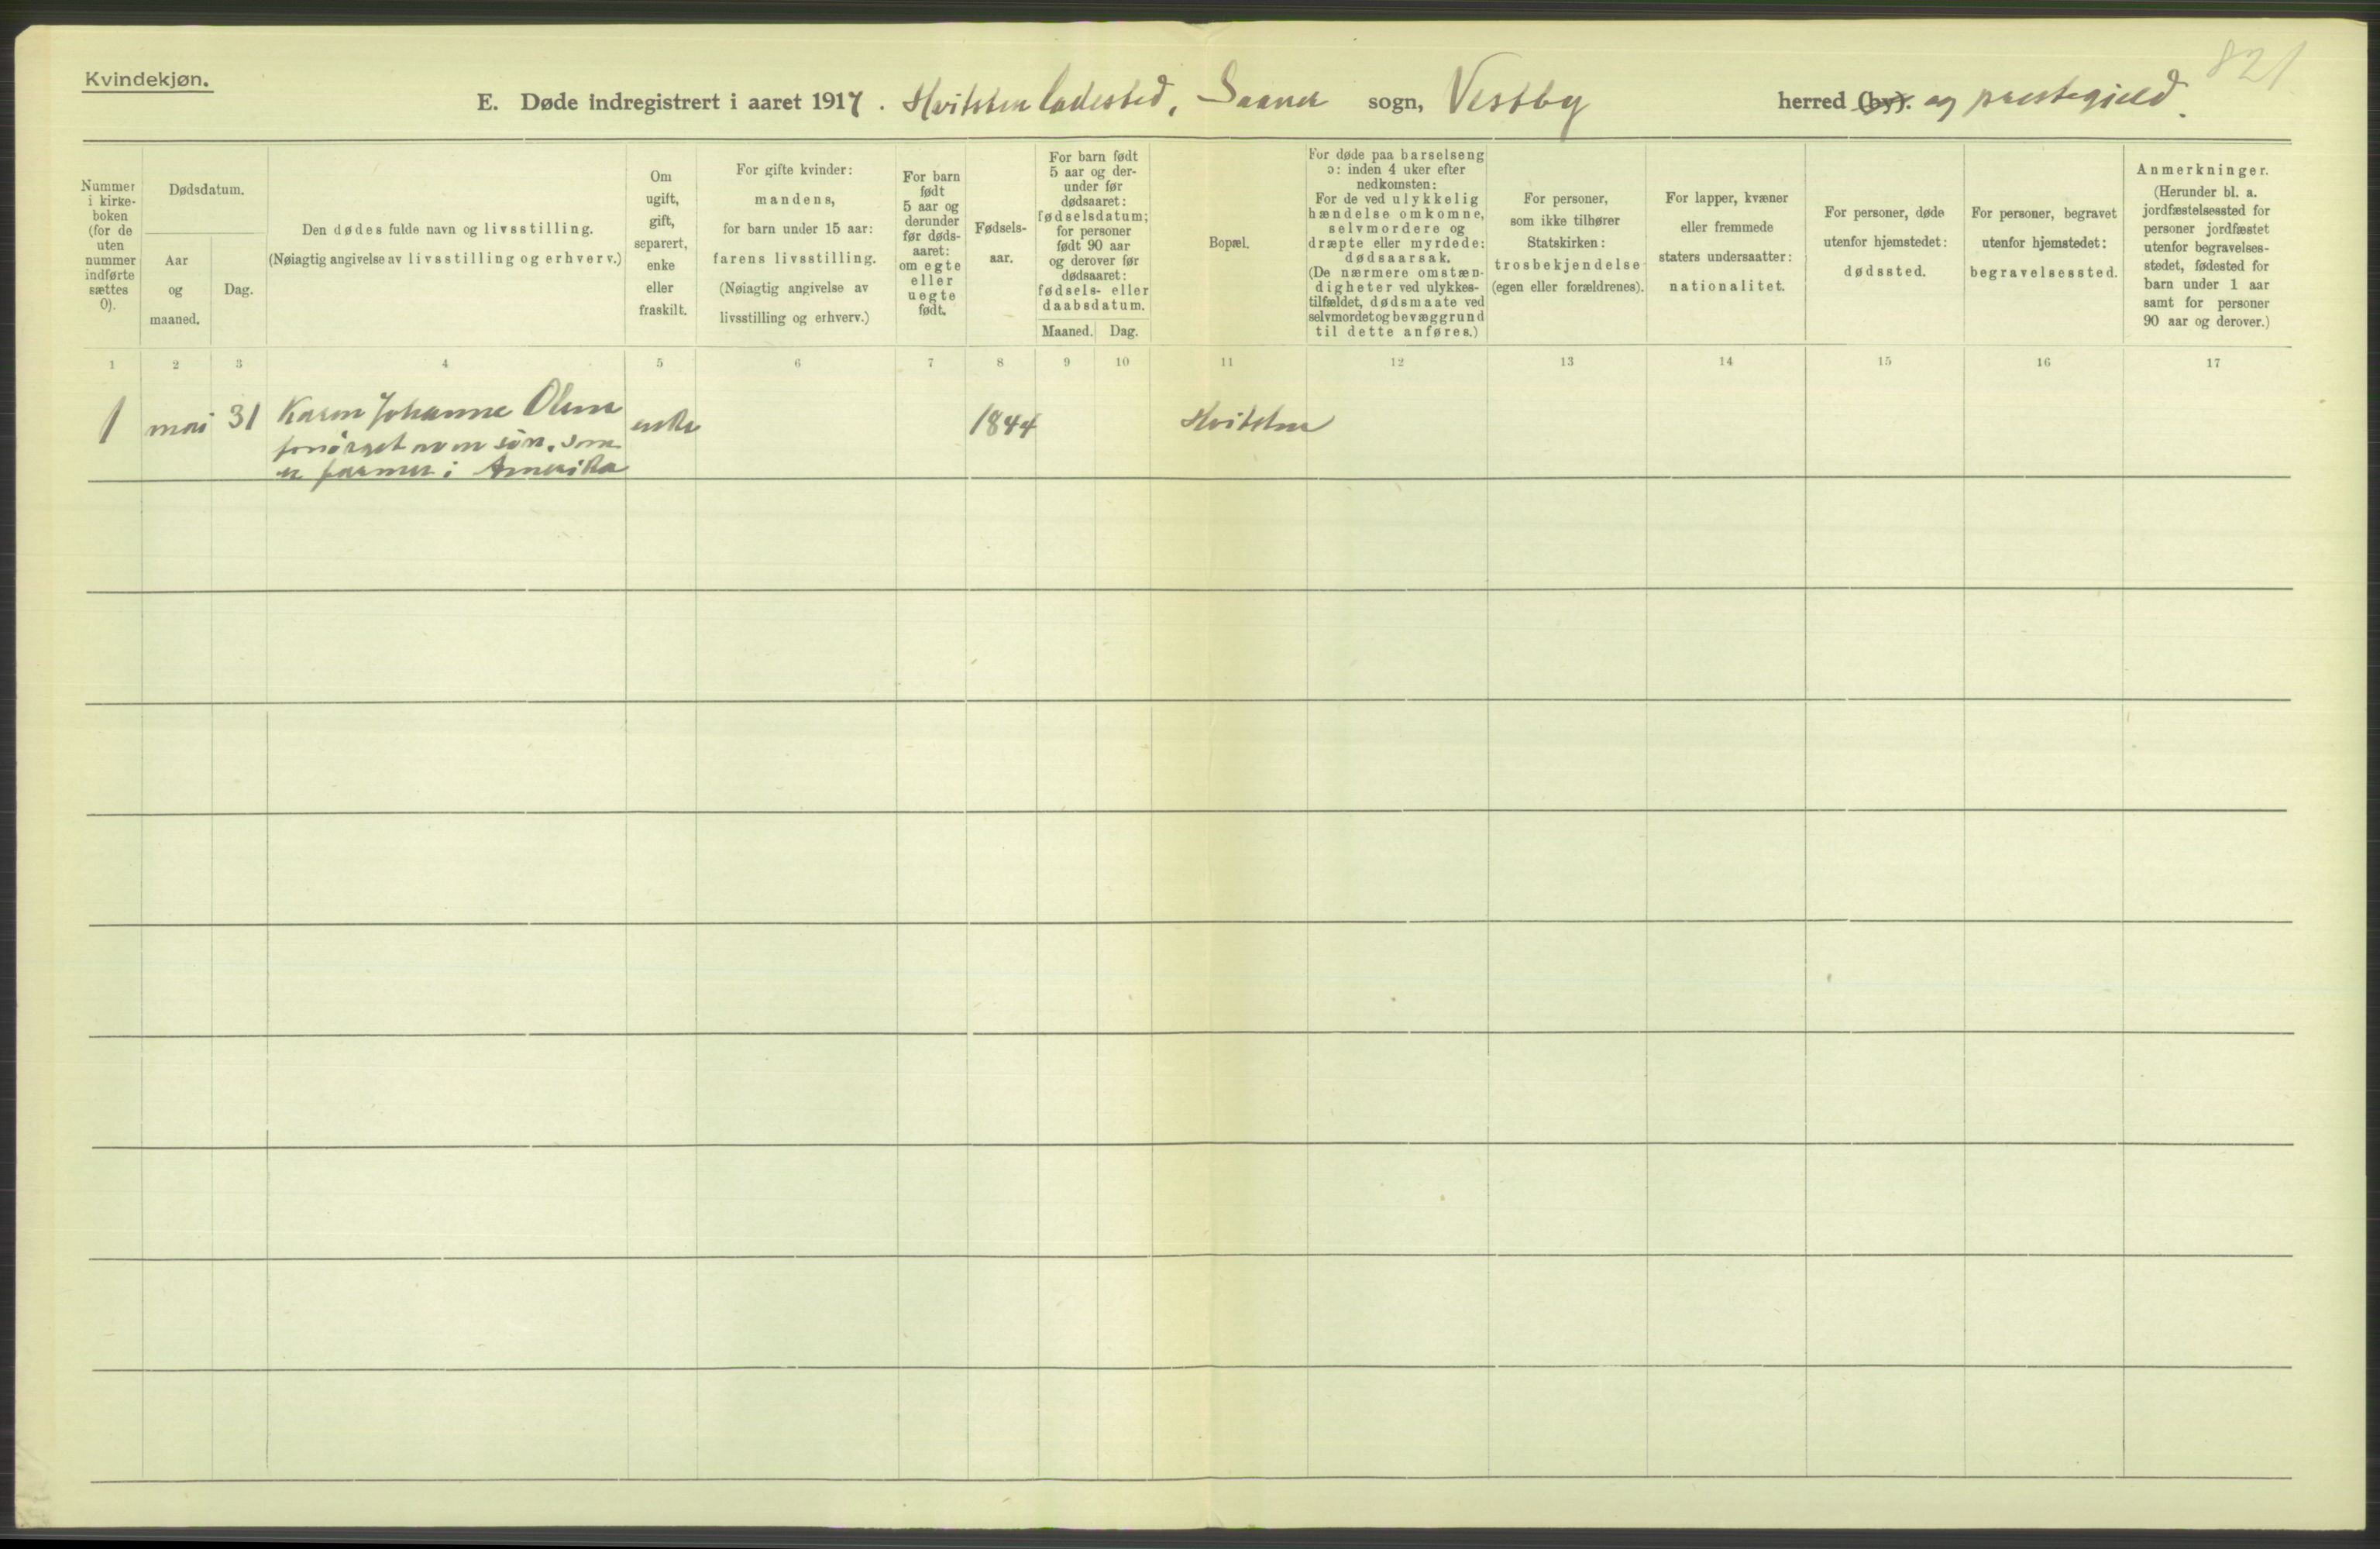 821
Kvindekjøn.
E. Døde indregistrert i aaret 1917. Hvitsten ladested, Saaner sogn, Vestby herred (by). og prestegjeld.
Nummer
i kirke-
boken
(for de
uten
nummer
indførte
sættes
0).
Dødsdatum.
Aar
og
maaned.
Dag.
Den dødes fulde navn og livsstilling.
(Nøiagtig angivelse av livsstilling og erhverv.)
Om
ugift,
gift,
separert,
enke
eller
fraskilt.
For gifte kvinder:
mandens,
for barn under 15 aar:
farens livsstilling.
(Nøiagtig angivelse av
livsstilling og erhverv.)
For barn
født
5 aar og
derunder
før døds-
aaret:
om egte
eller
uegte
født.
Fødsels-
aar.
For barn født
5 aar og der-
under før
dødsaaret:
fødselsdatum;
for personer
født 90 aar
og derover før
dødsaaret:
fødsels- eller
daabsdatum.
Maaned. Dag.
Bopæl.
For døde paa barselseng
ɔ: inden 4 uker efter
nedkomsten:
For de ved ulykkelig
hændelse omkomne,
selvmordere og
dræpte eller myrdede:
dødsaarsak.
(De nærmere omstæn-
digheter ved ulykkes-
tilfældet, dødsmaate ved
selvmordet og bevæggrund
til dette anføres.)
For personer,
som ikke tilhører
Statskirken:
trosbekjendelse
(egen eller forældrenes).
For lapper, kvæner
eller fremmede
staters undersaatter:
nationalitet.
For personer, døde
utenfor hjemstedet:
dødssted.
For personer, begravet
utenfor hjemstedet:
begravelsessted.
Anmerkninger.
(Herunder bl. a.
jordfæstelsessted for
personer jordfæstet
utenfor begravelses-
stedet, fødested for
barn under 1 aar
samt for personer
90 aar og derover.)
1 2 3 4 5 6 7 8 9 10 11 12 13 14 15 16 17
1 mai 31 Karen Johanne Olsen enke 1844 Hvitsten
forsørget av en søn, som
er farmer i Amerika